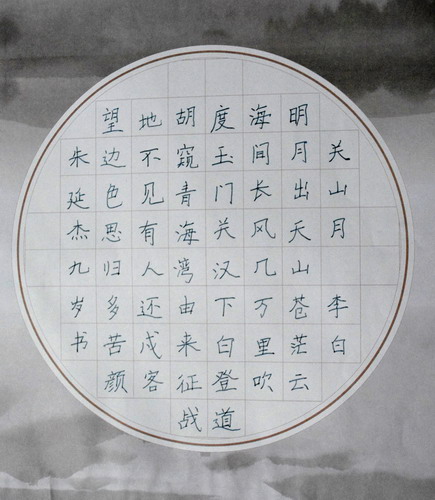 关山月李白
明月出天山苍茫云
海间长风几万里吹
度玉门关汉下白登道
胡窥青海湾由来征战
地不见有人还戍客
望边色思归多苦颜
朱延杰九岁书